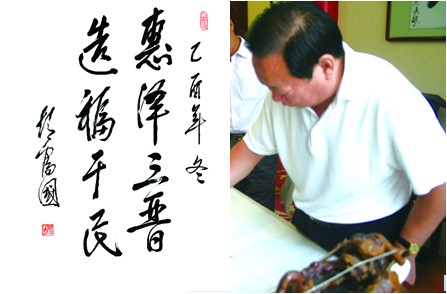 乙酉年冬
惠泽三晋
造福于民
富國